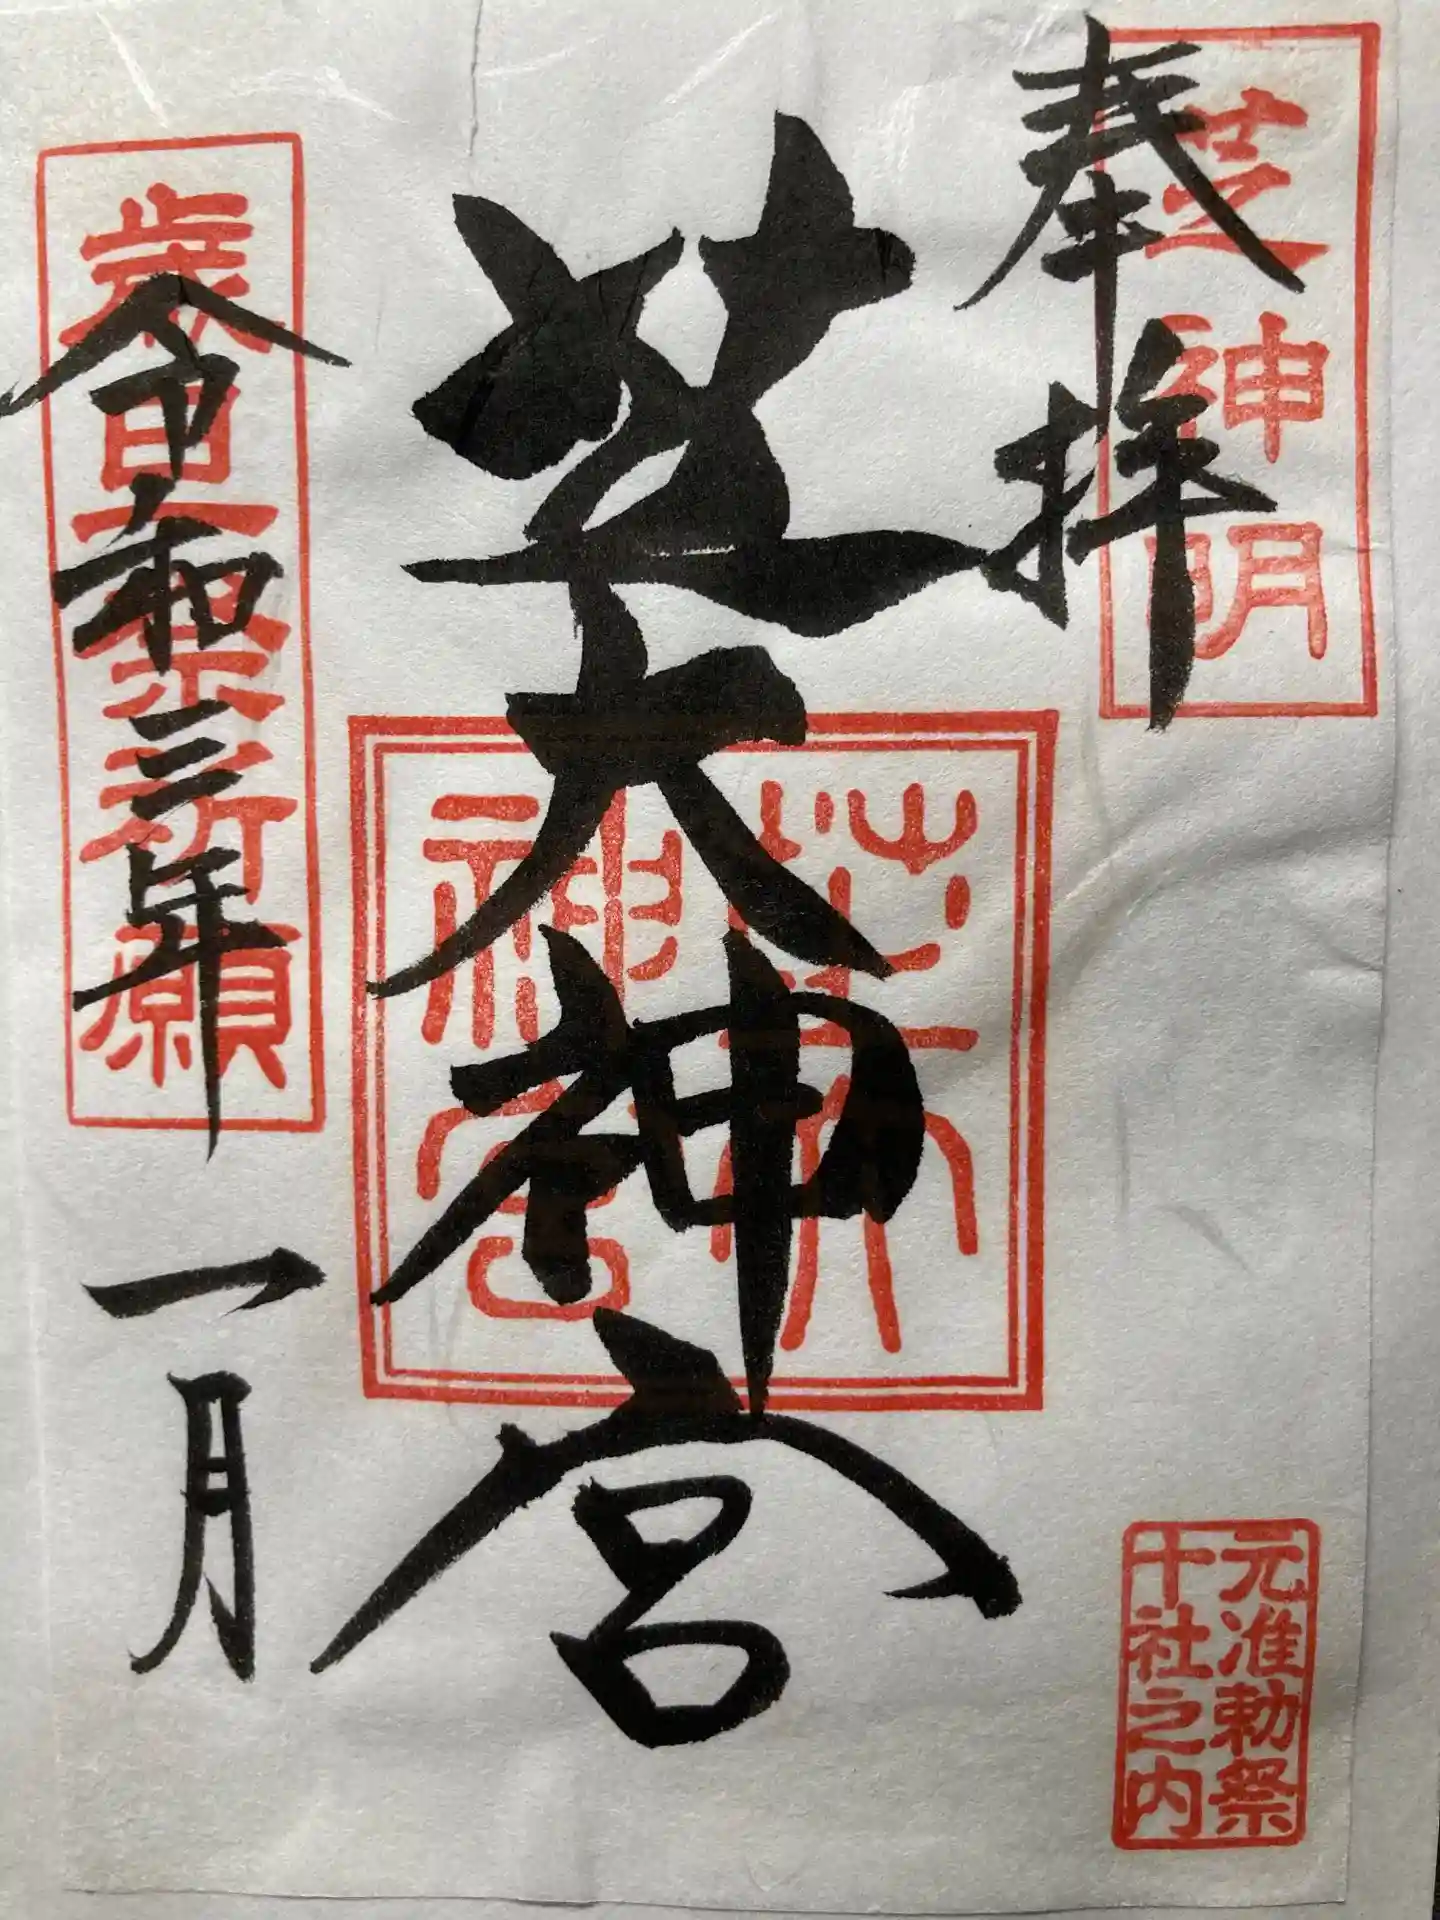 芝神明
奉拝
元准勅祭
十社之内
芝大神宮
芝大
神宮
歳旦祭祈願
令和三年一月